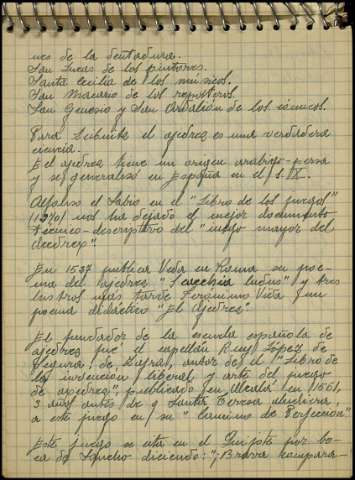 nes de la dentadura.
San Lucas de los pintores.
Santa Cecilia de los músicos.
San Macario de los reposteros.
San Genesio y San Ardalión de los cómicos.
Para Lubuite el ajedrez es una verdadera
ciencia.
El ajedrez tiene un origen arabigo-persa
y se generalizó en España en el s. IX.
Alfonso el Sabio en el "Libro de los juegos"
(1270) nos ha dejado el mejor documento
tecnico-descriptivo del "juego mayor del
acedrex".
En 1527 publica Vida en Roma su poe-
ma del ajedrez "Scacchia ludus" y tres
lustros mas tarde Jeronimo Vida, un
poema didáctico "El Ajedrez".
El fundador de la escuela española de
ajedrez fue el capellán Ruy López de
Segura, de Zafra, autor del "Libro de
la invención liberal y arte del juego
de ajedrez", publicado en Alcalá en 1561,
3 años antes de q Santa Teresa aludiera
a este juego en su "Camino de Perfección"
Este juego se cita en el Quijote por bo-
ca de Sancho diciendo: "¡Brava compara-